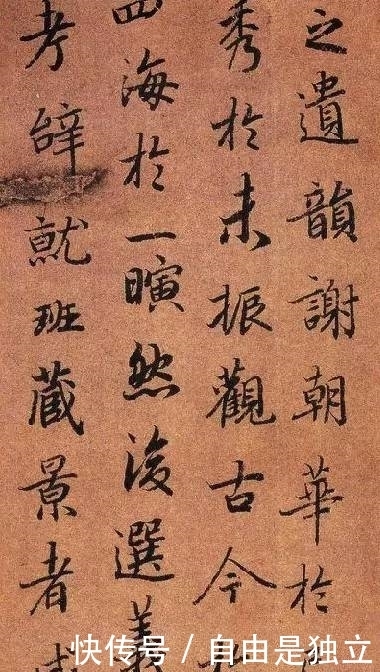 之遺韻謝朝華於
秀於未振觀古今
四海於一瞚然後選義
考辭就班藏景者
快传号 / 自由是独立